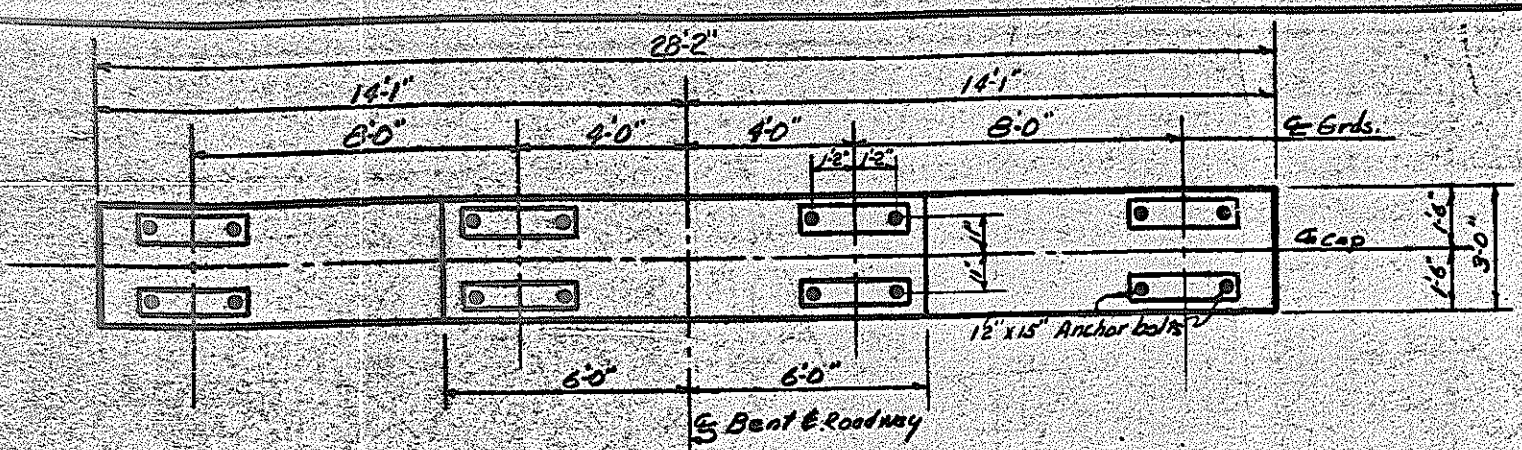 28'-2"
14'-1" 14'-1"
8'-0" 4'-0" 4'-0" 8'-0" ℄ Grds.
1'-2" 1'-2"
11" 11"
℄ Cap
1'-6" 1'-6"
3'-0"
1½" x 15" Anchor bolts
6'-0" 6'-0"
℄ Bent & Roadway